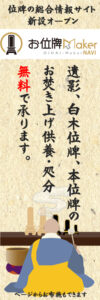 位牌の総合情報サイト
新設オープン
お位牌Maker
OIHAI-MAKER NAVI
遺影、白木位牌、本位牌の
お焚き上げ供養・処分
無料で承ります。
ページからお布施もできます